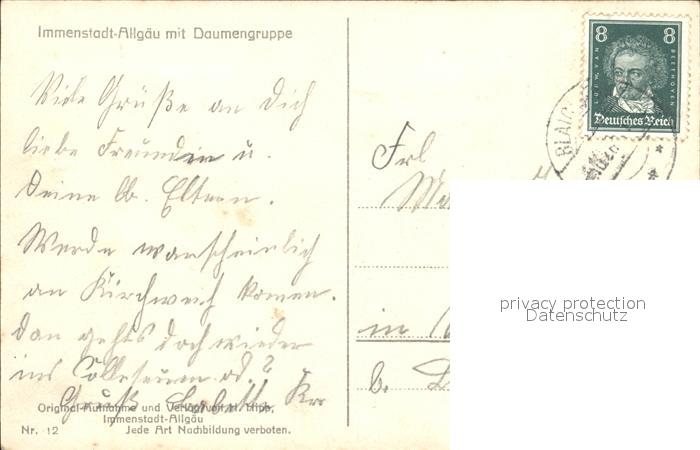 Immenstadt-Allgäu mit Daumengruppe
Viele Grüße an Dich
liebe Freundin u.
Deine lb. Eltern.
Werde warscheinlich
an Kirchweih komen.
Dan gehts doch wieder
ins od.?
Gruß
Original-Aufnahme und Verlag von H. Hipp,
Immenstadt-Allgäu
Nr. 12 Jede Art Nachbildung verboten.
8 8
LUDW. VAN BEETHOVEN
Deutsches Reich
BLAIC
Frl
in
b.
privacy protection
Datenschutz